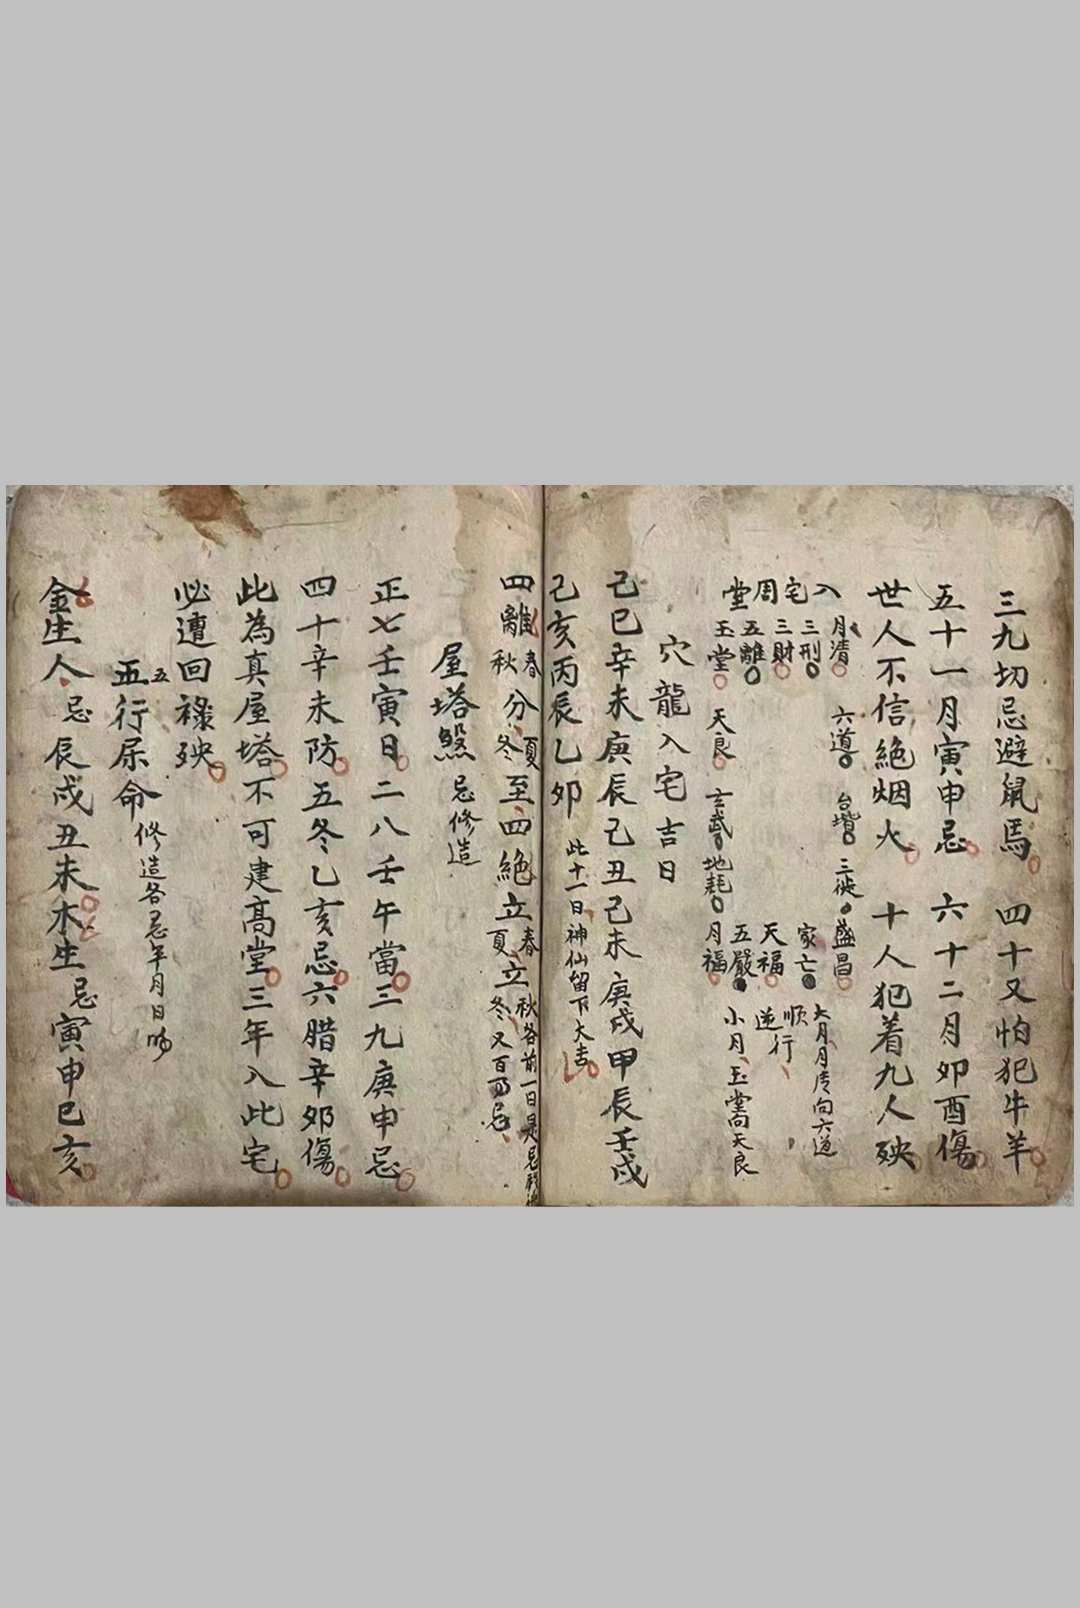 三九切忌避鼠焉 四十又怕犯牛羊
五十一月寅申忌 六十二月卯酉傷
世人不信絕烟火 十人犯着九人殃
入宅周堂
月清 六道 三徙 盛昌
三刑 家亡
三財 天福
五離 五嚴
玉堂 天良 玄武 地耗 月福
大月月 向六道
順
逆行
小月玉堂向天良
穴龍入宅吉日
己巳辛未庚辰己丑己未庚戌甲辰壬戌
己亥丙辰乙卯 此十一日神仙留下大吉
四離春秋分夏冬至四絕立春夏立秋冬各前一日是忌 又百忌
屋塔煞 忌修造
正七壬寅日二八壬午當三九庚申忌
四十辛未防五冬乙亥忌六腊辛卯傷
此為真屋塔不可建高堂三年八此宅
必遭回祿殃
五行尿命 五 修造各忌年月日時
金生人忌辰戌丑未木生忌寅申巳亥